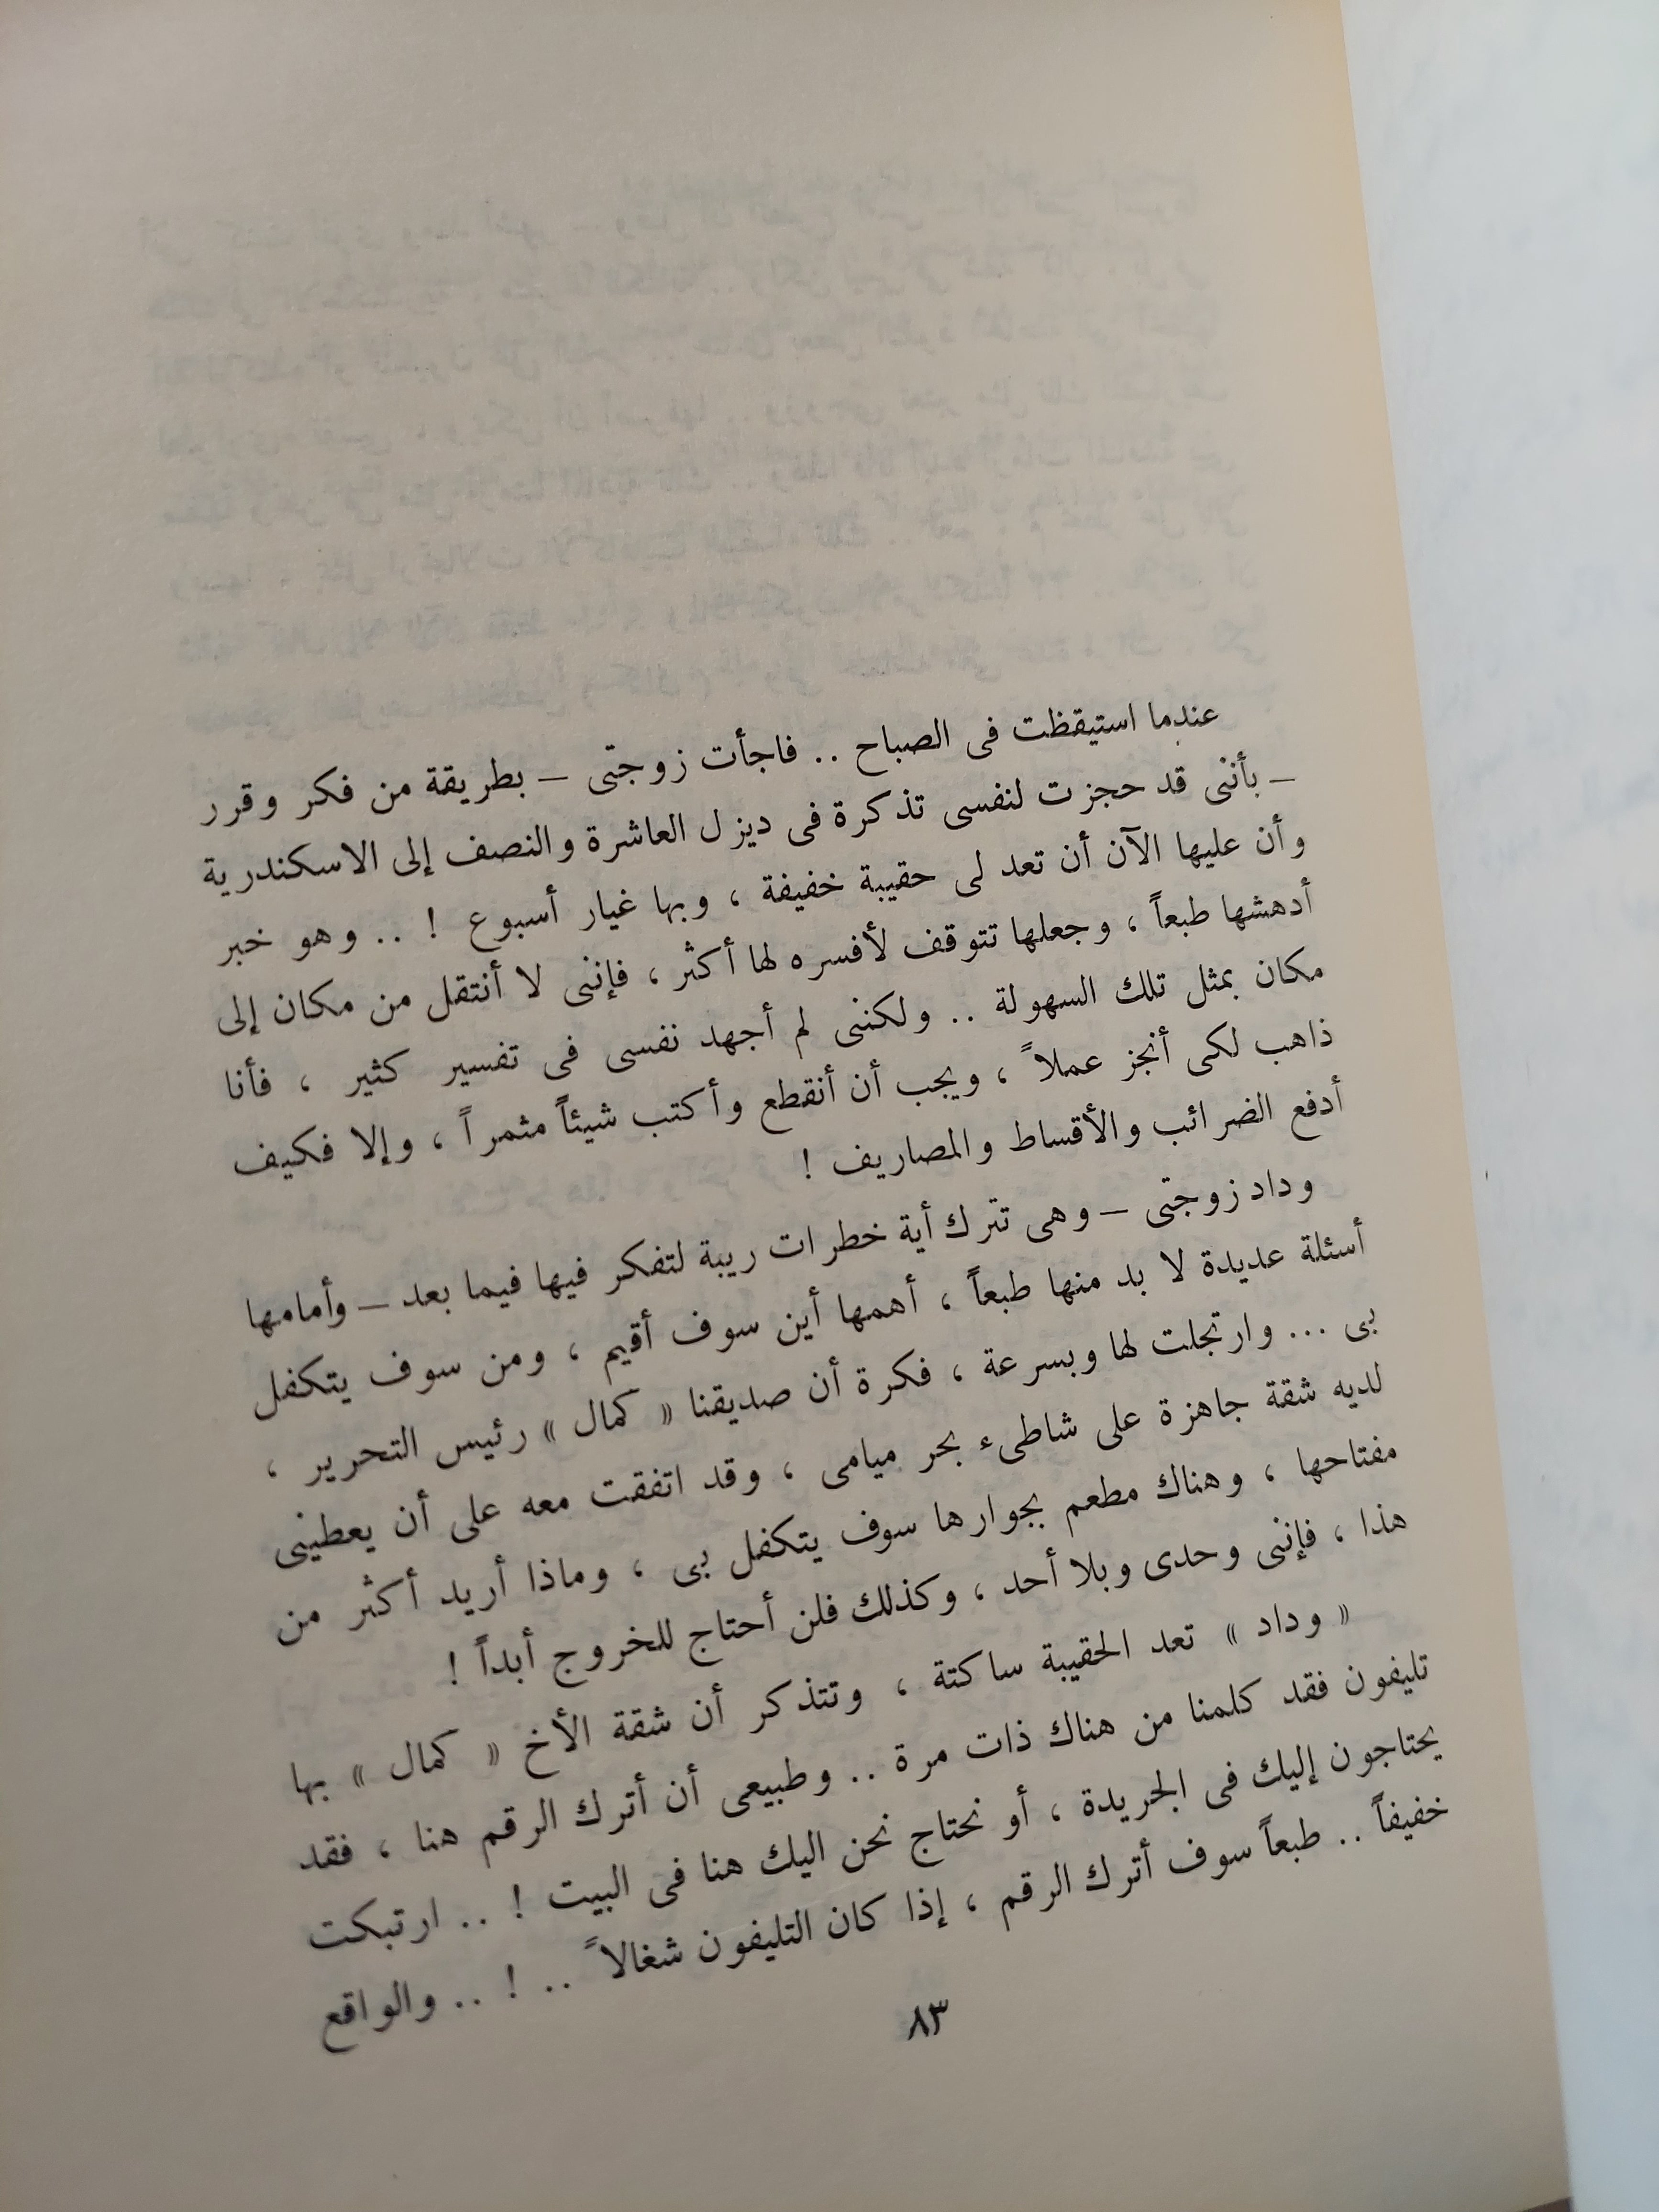 عندما استيقظت فى الصباح .. فاجأت زوجتى – بطريقة من فكر وقرر
– بأننى قد حجزت لنفسى تذكرة فى ديزل العاشرة والنصف إلى الاسكندرية
وأن عليها الآن أن تعد لى حقيبة خفيفة ، وبها غيار أسبوع ! .. وهو خبر
أدهشها طبعاً ، وجعلها تتوقف لأفسره لها أكثر ، فإننى لا أنتقل من مكان إلى
مكان بمثل تلك السهولة .. ولكننى لم أجهد نفسى فى تفسير كثير ، فأنا
ذاهب لكى أنجز عملاً ، ويجب أن أنقطع وأكتب شيئاً مثمراً ، وإلا فكيف
أدفع الضرائب والأقساط والمصاريف !
وداد زوجتى – وهى تترك أية خطرات ريبة لتفكر فيها فيما بعد – وأمامها
أسئلة عديدة لا بد منها طبعاً ، أهمها أين سوف أقيم ، ومن سوف يتكفل
بى ... وارتجلت لها وبسرعة ، فكرة أن صديقنا « كمال » رئيس التحرير ،
لديه شقة جاهزة على شاطىء بحر ميامى ، وقد اتفقت معه على أن يعطينى
مفتاحها ، وهناك مطعم بجوارها سوف يتكفل بى ، وماذا أريد أكثر من
هذا ، فإننى وحدى وبلا أحد ، وكذلك فلن أحتاج للخروج أبداً !
« وداد » تعد الحقيبة ساكتة ، وتتذكر أن شقة الأخ « كمال » بها
تليفون فقد كلمنا من هناك ذات مرة .. وطبيعى أن أترك الرقم هنا ، فقد
يحتاجون إليك فى الجريدة ، أو نحتاج نحن اليك هنا فى البيت ! .. ارتبكت
خفيفاً .. طبعاً سوف أترك الرقم ، إذا كان التليفون شغالاً .. ! .. والواقع
٨٣